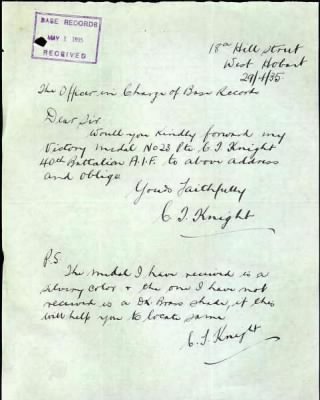 BASE RECORDS
MAY 1 1935
RECEIVED
18a Hill Street
West Hobart
29/4/35.
The Officer in Charge of Base Records
Dear Sir
Would you kindly forward my
Victory medal No 23 Pte. C. I. Knight
40th Battalion A.I.F. to above address
and oblige
Yours Faithfully
C. I. Knight
P.S.
The medal I have received is a
silvery color & the one I have not
received is a Dk Brass shade, if this
will help you to locate same
C. I. Knight